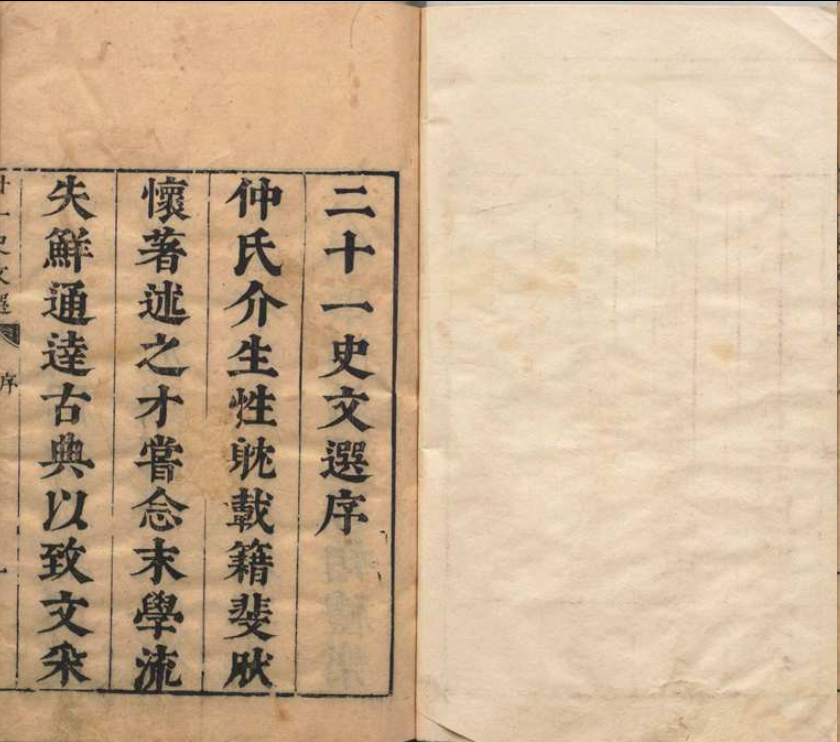 二十一史文選序
仲氏介生性躭載籍斐肰
懷著述之才嘗念末學流
失鮮通達古典以致文采
廿一史文選
序
一